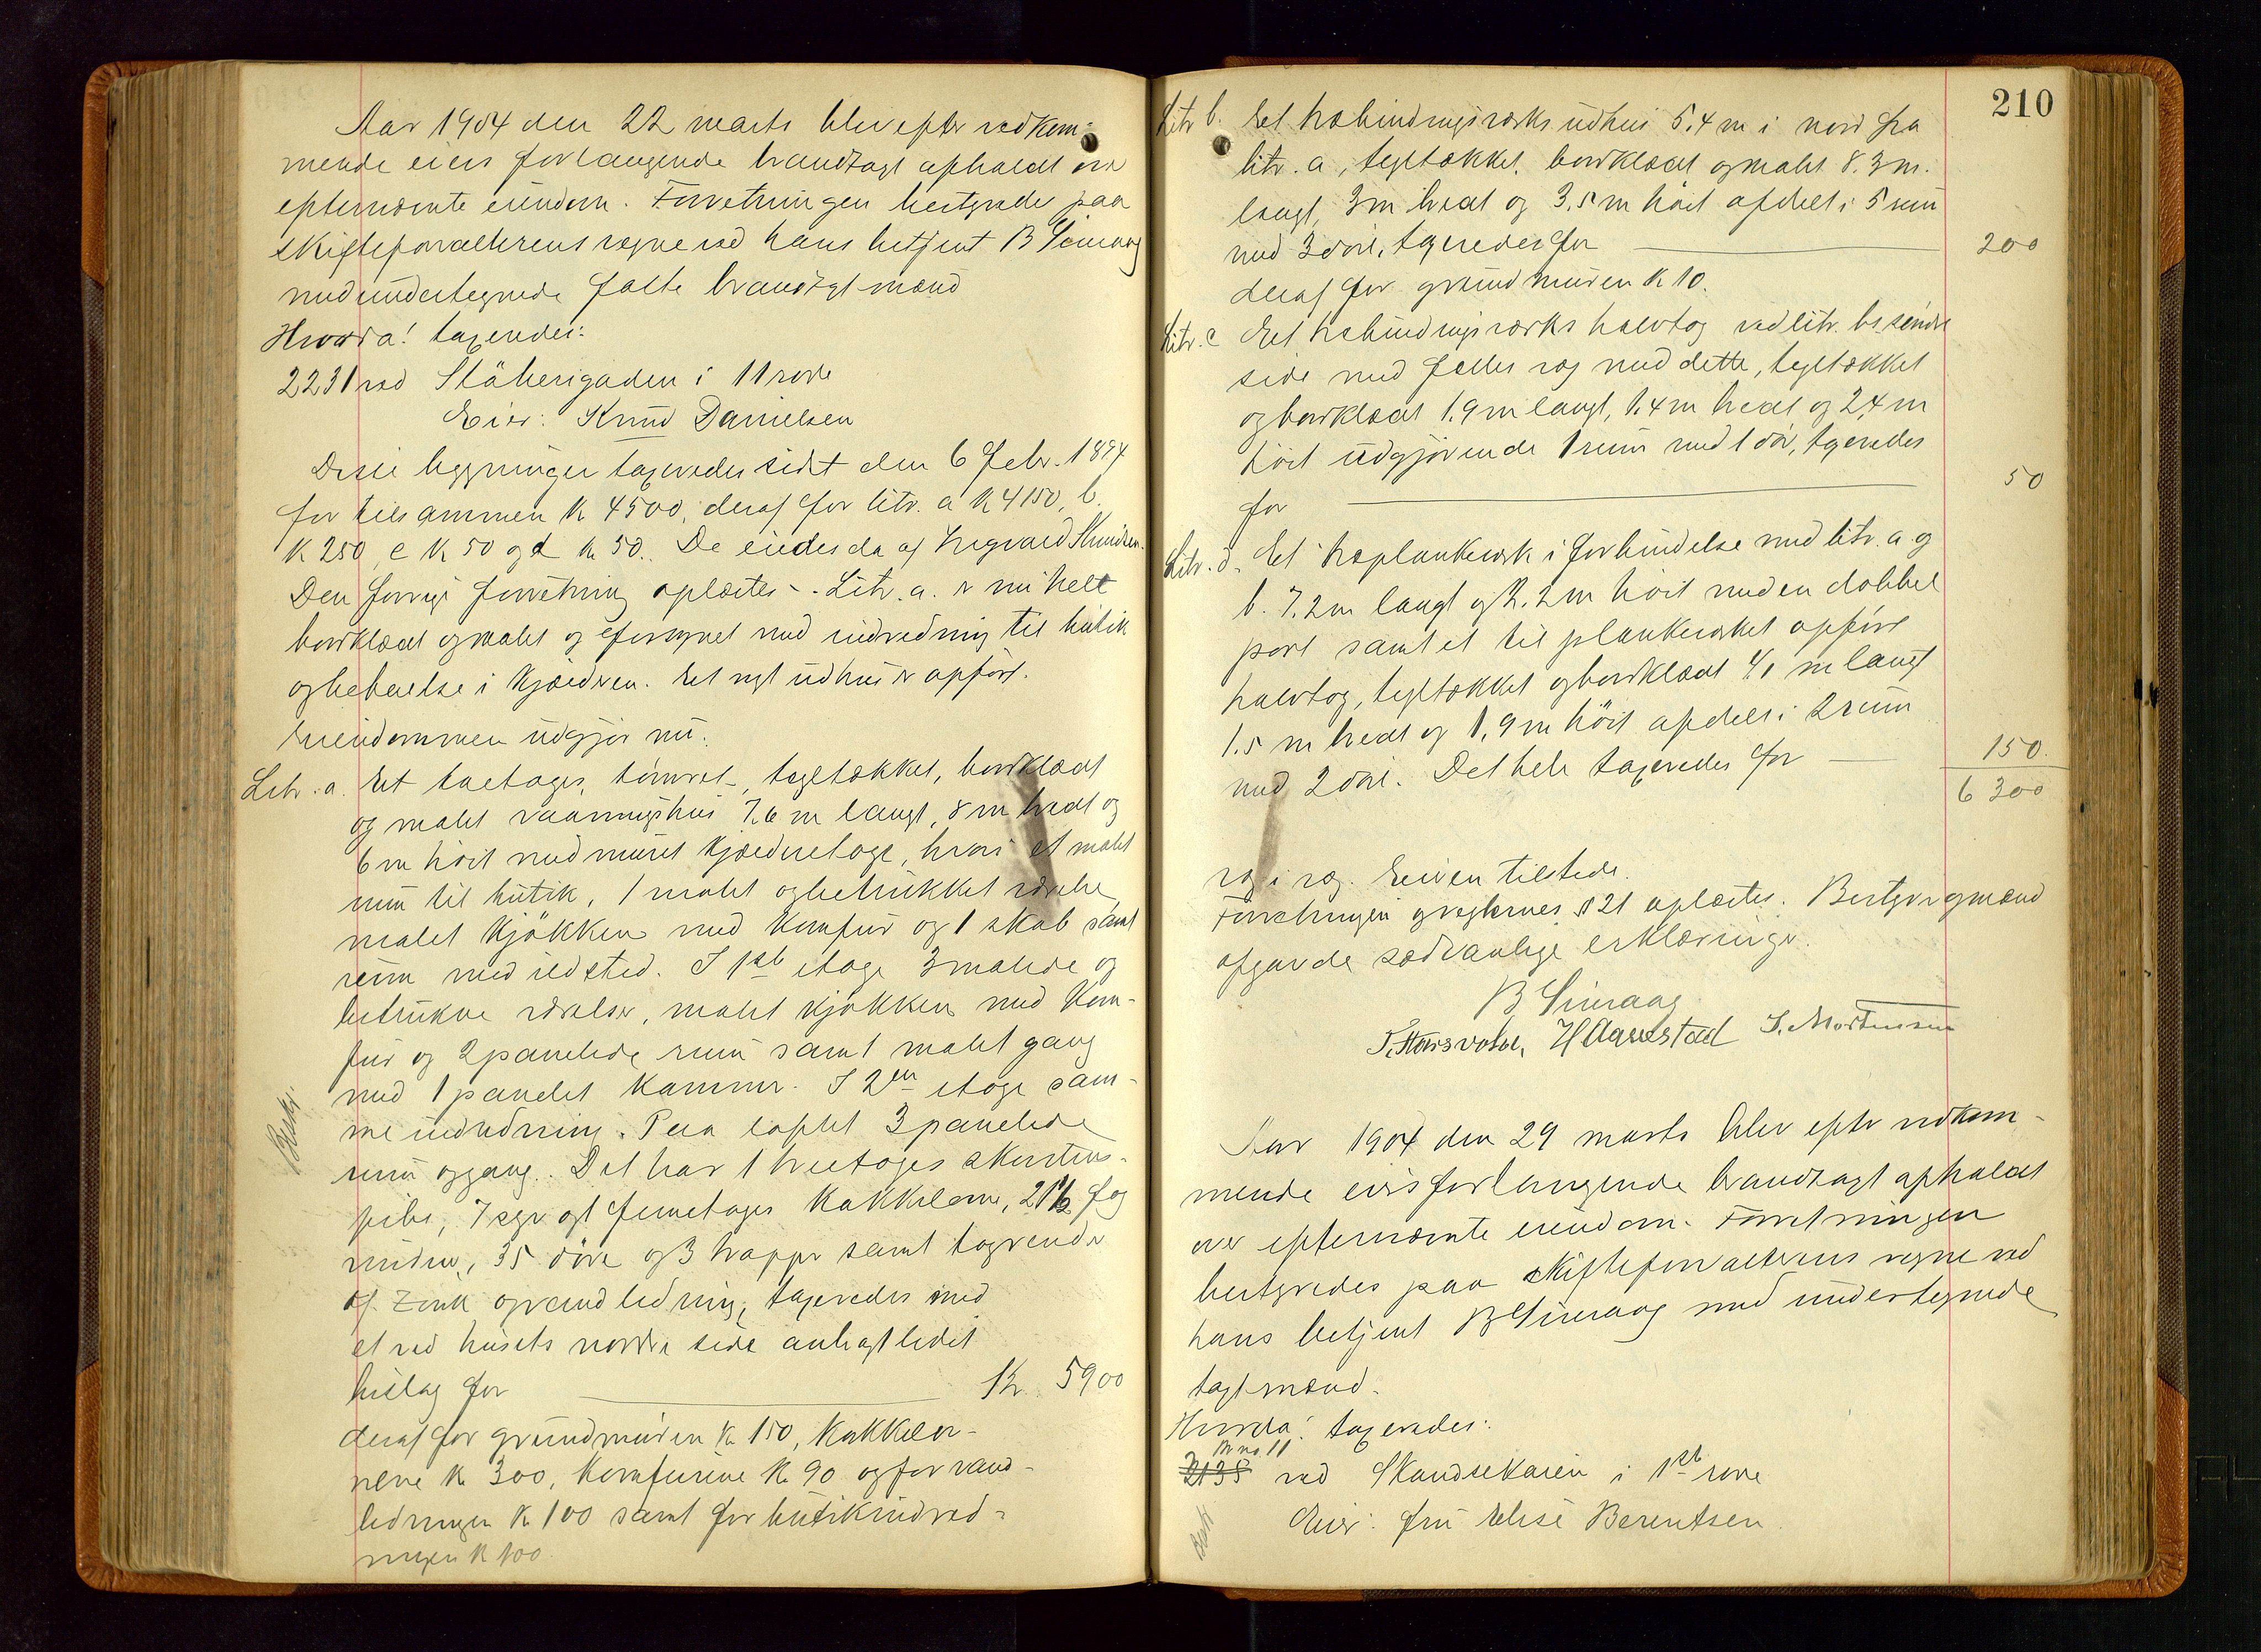 Aar 1904 den 22 marts blev efter vedkom-
mende eiers forlangende brandtaxt afholdt over
efternævnte eiendom. Forretningen bestyredes paa
skifteforvalterens vegne ved hans betjent B Simraag
med undertegnede faste brandtaxtmænd
Hvorda! taxeredes:
2231 ved Støberigaden i 11 rode
Eier: Knud Danielsen
Disse bygninger taxeredes sidst den 6 febr. 1894
for tilsammen K 4500, deraf for litr. a K 4150, b.
K 250, c K 50 og d K 50. De eiedes da af Ingvald Knudsen.
Den forrige forretning oplæstes -. Litr. a. er nu helt
bordklædt og malet og forsynet med indredning til butik
og bebœlse i kjœlderen. Et nyt udhus er opført.
Eiendommen udgjør nu:
Litr. a. Et toetages, tømret, tegltækket, bordklædt
og malet vaaningshus 7.6 m langt, 8 m bredt og
6 m høit med muret kjælderetage, hvori et malet
rum til butik, 1 malet og betrukket værelse,
malet kjøkken med komfur og 1 skab samt
rum med ildsted. I 1ste etage 3 malede og
betrukne værelser, malet kjøkken med kom-
fur og 2 panelede rum samt malet gang
med 1 panelet kammer. I 2den etage sam-
me indredning. Paa loftet 3 panelede
rum og gang. Det har 1 treetages skorstens-
pibe, 7 og femetages kakkelovne, 21 1/2 fag
vinduer, 35 døre og 3 trapper samt tagrender
af zink og vandledning, taxeredes med
et ved husets nordre side anbragt lidet
bislag for Kr. 5900
deraf for grundmuren K 150, kakkelov-
nene K 300, komfurene K 90 og for vand-
ledningen K 100 samt for butikindred-
ningen K 100
Beskr.
210
Litr b. Et træbindingsværks udhus 5.4 m i nord fra
litr. a, tegltækket, bordklædt og malet 8.3 m.
langt, 3 m bredt og 3.5 m høit afdelt i 5 rum
med 3 døre, taxeredes for 200
deraf for grundmuren K 10.
Litr. c Et træbindingsværks halvtag ved litr. bs søndre
side med fælles væg med dette, tegltækket
og bordklædt 1.9 m langt, 1.4 m bredt og 2.4 m
høit udgjørende 1 rum med 1 dør, taxeredes
for 50
Litr. d. Et træplankeværk i forbindelse med litr. a og
b. 7.2 m langt og 2.2 m høit med en dobbel
port samt et til plankeværket opført
halvtag, tegltækket og bordklædt 4.1 m langt
1.5 m bredt og 1.9 m høit afdelt i 2 rum
med 2 døre. Det hele taxeredes for 150.
6300
væg i væg. Eieren tilstede.
Forretningen og reglernes § 21 oplæstes. Bestyrer og mænd
afgav de sædvanlige erklæringer.
B Simraag
T. Haarsvolde, H Aarrestad J. Mortensen
Aar 1904 den 29 marts blev efter vedkom-
mende eiers forlangende brandtaxt afholdt
over efternævnte eiendom. Forretningen
bestyredes paa skifteforvalterens vegne ved
hans betjent B Simraag med undertegnede
taxtmænd.
Hvorda! taxeredes:
Mno 11
2138 ved Skandsekaien i 1ste rode
Eier: fru Elise Berentsen.
Besk